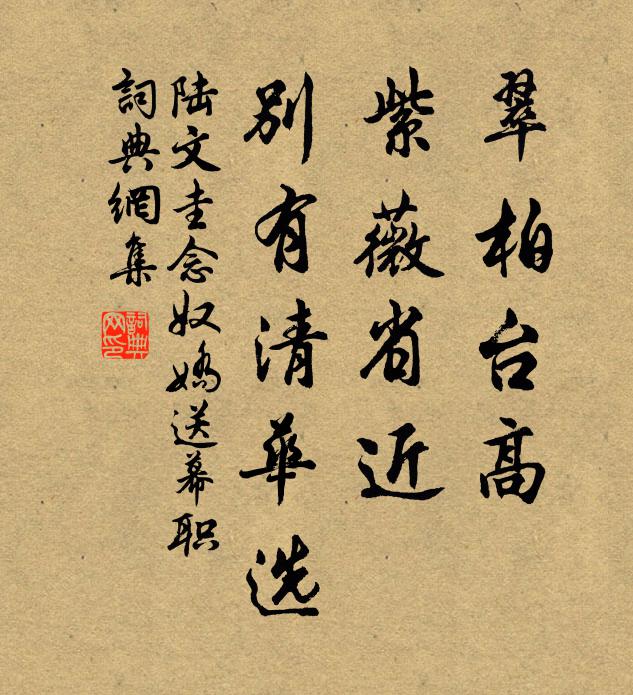 翠柏台高
紫薇省近
別有清華选
陆文圭念奴嬌送幕职
詞典網集
詞典網印